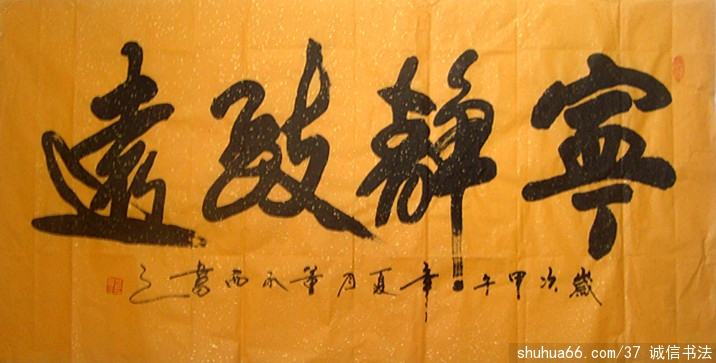 寧靜致遠
歲次甲午年夏月董永西書之
shuhua66.com/37 诚信书法